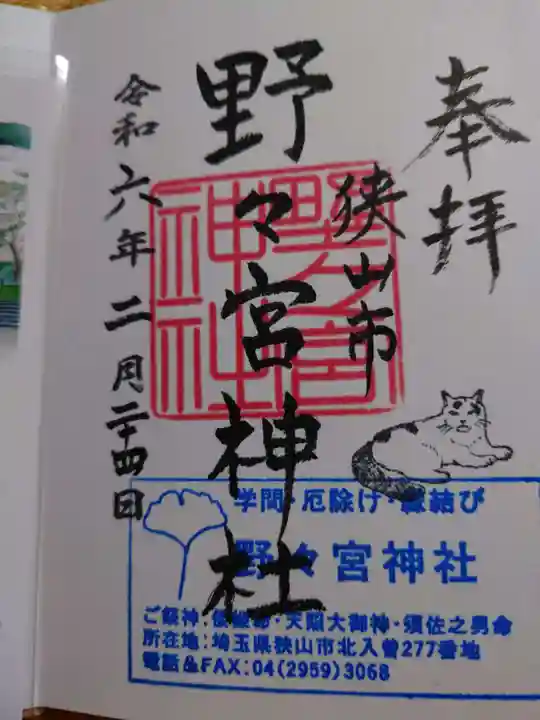 奉拝
狭山市
野々宮神社
令和六年二月二十四日
野々宮神社
学問・厄除け・縁結び
野々宮神社
ご祭神:倭姫命・天照大御神・須佐之男命
所在地:埼玉県狭山市北入曽277番地
電話&FAX:04(2959)3068